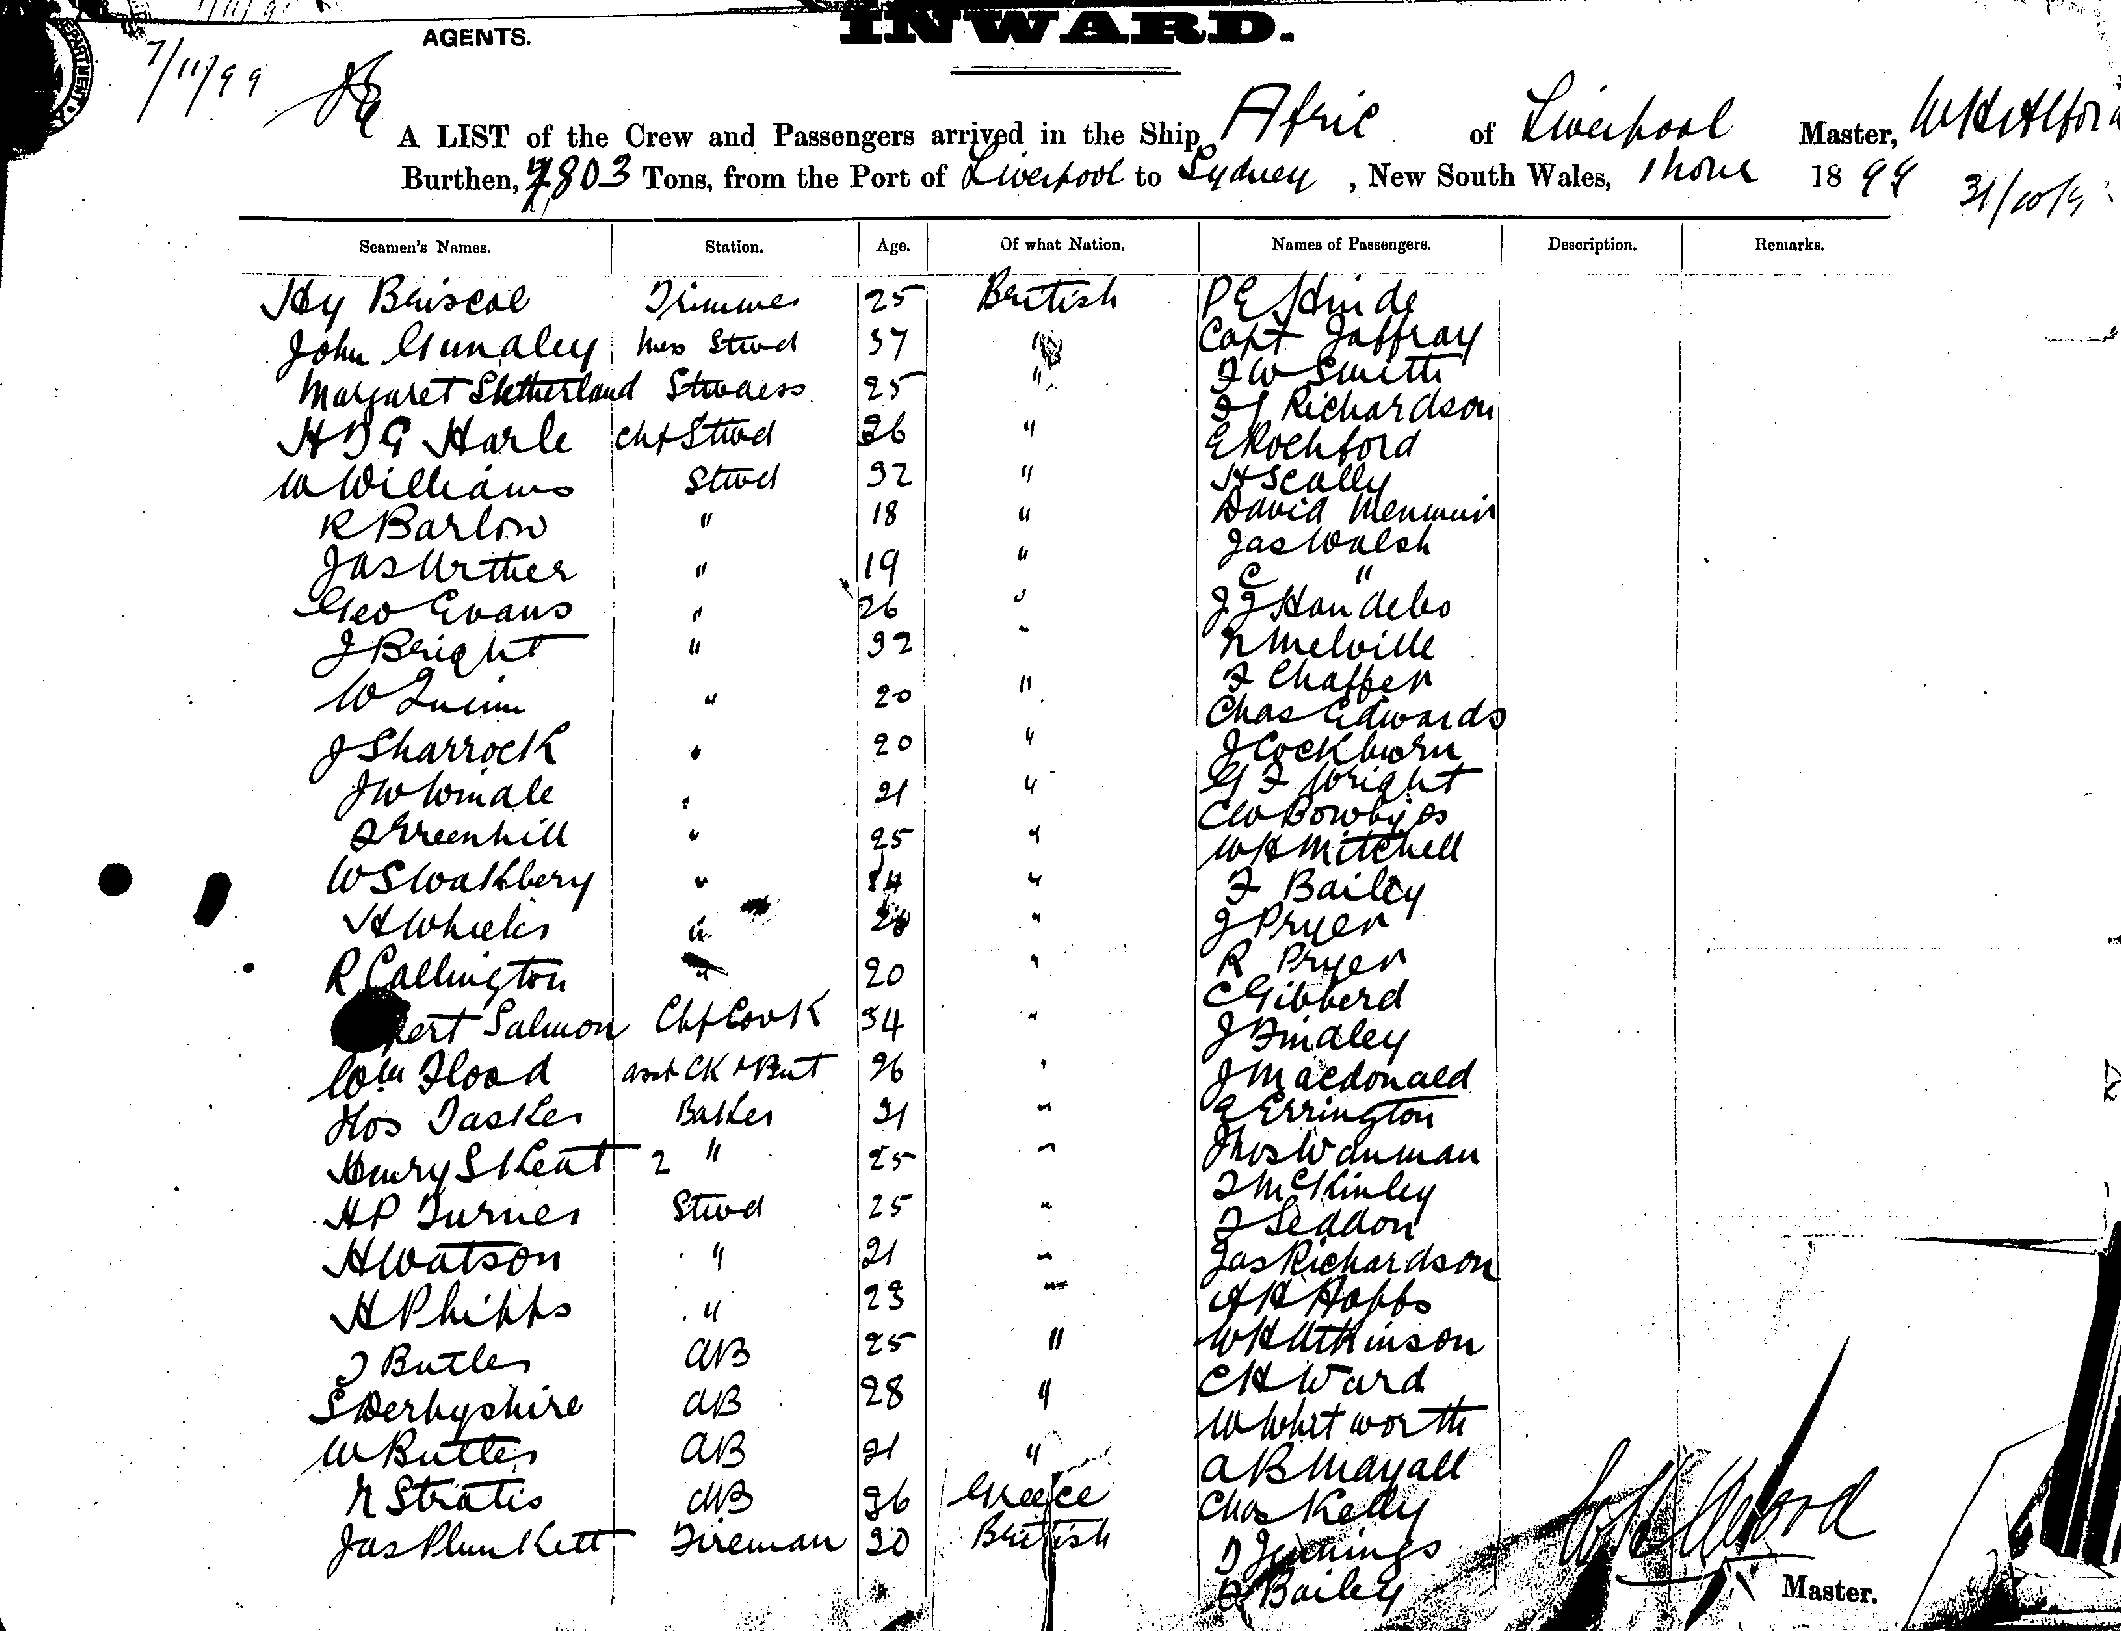 INWARD.
AGENTS.
7/11/99
A LIST of the Crew and Passengers arrived in the Ship Afric of Liverpool Master, WH Alford
Burthen, 7803 Tons, from the Port of Liverpool to Sydney , New South Wales, 1 Nove 1899
Seamen's Names. Station. Age. Of what Nation. Names of Passengers. Description. Remarks.
Hy Briscoe Trimmer 25 British P E Hinde
John Gundley Mess Stwd 37 " Capt Jaffray
Margaret Sutherland Stwdess 25 " F W Smith
F J Richardson
H D G Harle Chf Stwd 36 " E Rochford
W Williams Stwd 32 " H Scally
R Barlow " 18 " David Menmuir
Jas Urther " 19 " Jas Walsh
C "
Geo Evans " 26 " J J Handebo
J Bright " 32 " N Melville
W Quinn " 20 " F Chaffer
Chas Edwards
J Sharrock " 20 " J Cockburn
J W Windle " 21 " G F Wright
C W Bowbyes
F Greenhill " 25 " W H Mitchell
W S Wathbery " " F Bailey
H Wheeler " " J Pryer
R Callington " 20 " R Pryer
C Gibberd
Salmon Chf Cook 34 " J Findley
Wm Flood asst CK & But 26 " J Macdonald
Hos Tasker Baker 31 " E Errington
Henry Skeat 2 " 25 " Thos Wanman
T McKinley
H P Turner Stwd 25 " F Seddon
H Watson " 21 " Jas Richardson
H Phipps " 23 " A H Hobbs
T Butler AB 25 " W H Atkinson
S Derbyshire AB 28 " C H Ward
W Whitworth
W Butler AB 21 " A B Mayall
N Stratis AB 36 Greece Chas Kelly
Jas Plunkett Fireman 30 British J Jennings
Bailey
WH Alford
Master.